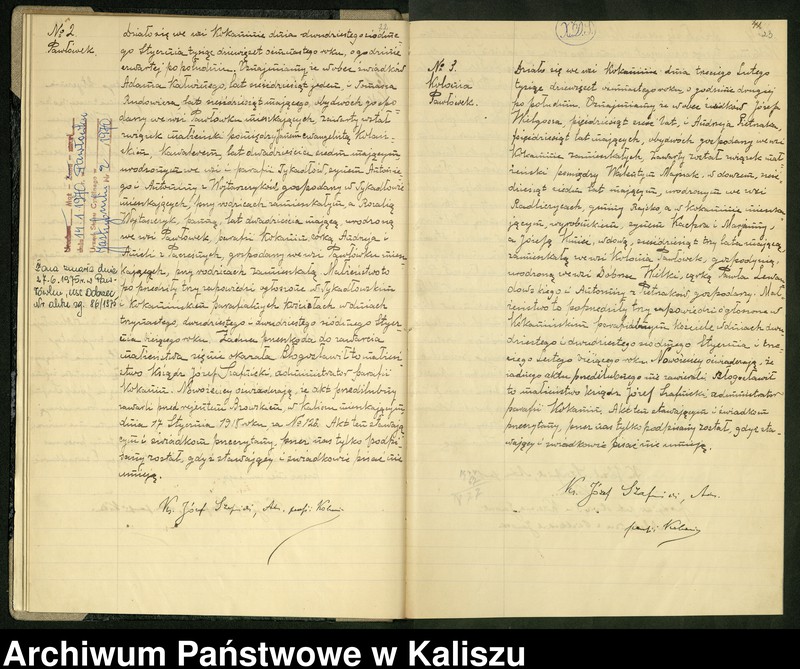 № 2.
Pawłówek.
Działo się we wsi Kokaninie dnia dwudziestego siódme-
go Stycznia tysiąc dziewięćset osiemnastego roku, o godzinie
czwartej po południu. Oznajmiamy, że w obec świadków
Adama lat sześdziesiąt jeden i Tomasza
lat sześdziesiąt mającego, obydwóch gospo-
darzy we wsi Pawłówku mieszkających, zawarty został
związek małżeński pomiędzy
Kawalerem, lat dwadzieścia siedm mającym,
urodzonym we wsi i parafii Tykadłów, synem Antonie-
go i Antoniny z gospodarzy w Tykadłowie
mieszkających, przy rodzicach zamieszkałym, a Rozalią
Wojtaszczyk, panną, lat dwadzieścia mającą, urodzoną
we wsi Pawłówek, parafii Kokanin, córką Andrzeja i
gospodarzy we wsi Pawłówku miesz-
kających, przy rodzicach zamieszkałą. Małżeństwo to
poprzedziły trzy zapowiedzi ogłoszone w Tykadłowskim
i Kokanińskim parafialnych Kościołach w dniach
trzynastego, dwudziestego i dwudziestego siódmego Stycz-
nia bieżącego roku. Żadna przeszkoda do zawarcia
małżeństwa zajście Błogosławił to małżeń-
stwo Ksiądz Józef Szafnicki, administrator parafii
Kokanin. Nowożeńcy oświadczają, że akt przedślubny
zawarli przed rejentem w Kaliszu mieszkającym
dnia 17 Stycznia 1918 roku za № 126. Akt ten stawają-
cym i świadkom przeczytany, przez nas tylko podpi-
sany został, gdyż stawający i świadkowie pisać nie
umieją.
Ks. Józef Szafnicki, Adm. parafii Kokanin
dnia 14.1.1970
№ 2 1970
Żona zmarła dnia
27.6.1975r. w Paw-
łówku, USC Dobrzec
Nr aktu zg. 86/1975
23
№ 3.
Kolonia
Pawłówek.
Działo się we wsi Kokaninie dnia trzeciego Lutego
tysiąc dziewięćset osiemnastego roku, o godzinie drugiej
po południu. Oznajmiamy, że w obec świadków Józefa
pięćdziesiąt sześć lat, i Andrzeja Pietrzaka,
pięćdziesiąt lat mających, obydwóch gospodarzy we wsi
Kokaninie zamieszkałych, zawarty został związek mał-
żeński pomiędzy Walentym wdowcem, sześć-
dziesiąt siedm lat mającym, urodzonym we wsi
Radliczycach, gminy a w Kokaninie mieszka-
jącym, wyrobnikiem, synem Kacpra i Maryanny,
a Józefą wdową, sześdziesiąt trzy lata mającą,
zamieszkałą we wsi Kolonia Pawłówek, gospodynią,
urodzoną we wsi Dobrzec Wielki, córką Pawła Lewan-
dowskiego i Antoniny z Pietrzaków, gospodarzy. Mał-
żeństwo to poprzedziły trzy zapowiedzi ogłoszone w
Kokanińskim parafialnym Kościele w dniach dwu-
dziestego i dwudziestego siódmego Stycznia i trze-
ciego Lutego bieżącego roku. Nowożeńcy oświadczają, że
żadnego aktu przedślubnego nie zawierali. Błogosławił
to małżeństwo ksiądz Józef Szafnicki, administrator
parafii Kokanin. Akt ten stawającym i świadkom
przeczytany, przez nas tylko podpisany został, gdyż sta-
wający i świadkowie pisać nie umieją.
Ks. Józef Szafnicki, Adm.
parafii Kokanin
Archiwum Państwowe w Kaliszu